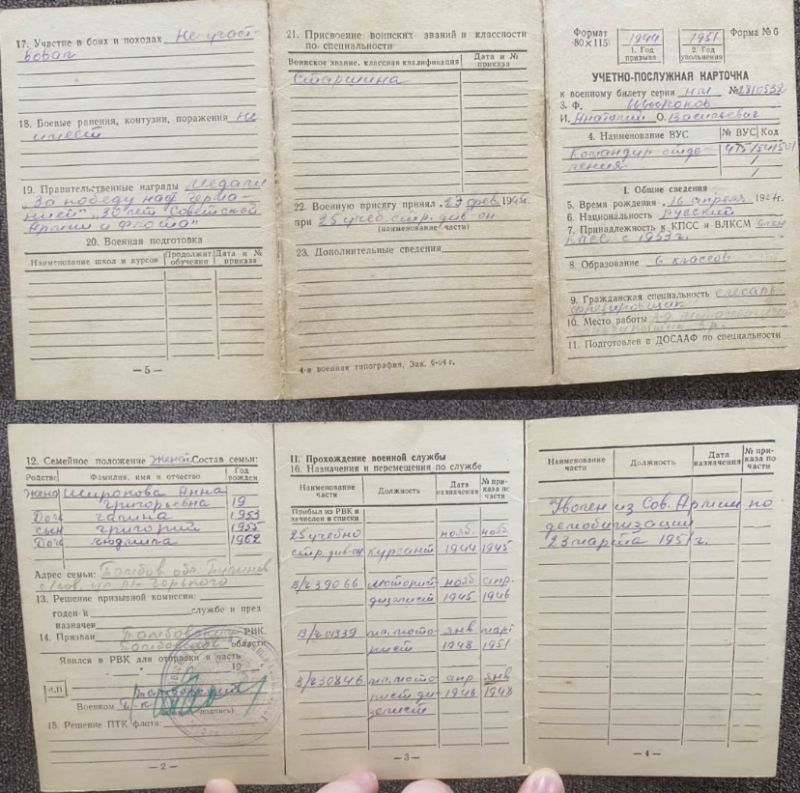 17. Участие в боях и походах Не участ-
вовал
18. Боевые ранения, контузии, поражения не
имеет
19. Правительственные награды Медали
"За победу над Герма-
нией" "30 лет Советской
Армии и Флота"
20. Военная подготовка
Наименование школ и курсов
Продолжит обучения
Дата и № приказа
— 5 —
21. Присвоение воинских званий и классности
по специальности
Воинское звание, классная квалификация
Дата и № приказа
Старшина
22. Военную присягу принял 23 фев 1945г.
при 25 учеб. стр. див-он
(наименование части)
23. Дополнительные сведения
4-я военная типография, Зак. 6-64 г.
Формат
80×115
1944
1. Год
призыва
1951
2. Год
увольнения
Форма № 6
УЧЕТНО-ПОСЛУЖНАЯ КАРТОЧКА
к военному билету серия НИ № 2810532
3. Ф.
И. Анатолий О. Васильевич
4. Наименование ВУС
№ ВУС Код
Командир отде-
ления
I. Общие сведения
5. Время рождения 16 апреля 1927г.
6. Национальность Русский
7. Принадлежность к КПСС и ВЛКСМ член
КПСС с 1953 г.
8. Образование 6 классов
9. Гражданская специальность слесарь
фрезеровщик
10. Место работы
11. Подготовлен в ДОСААФ по специальности
12. Семейное положение женат. Состав семьи:
Родство
Фамилия, имя и отчество
Год рожден
Жена Анна
Григорьевна 19
Доч Галина 1953
сын Григорий 1955
Доч Людмила 1962
Адрес семьи: Тамбов. обл.
Горького
13. Решение призывной комиссии:
годен к службе и пред
назначен
14. Призван Тамбовским РВК
Тамбовской области
Явился в РВК для отправки в часть
19
М.П.
Военком
(подпись)
15. Решение ПТК флота:
— 2 —
II. Прохождение военной службы
16. Назначения и перемещения по службе
Наименование части
Должность
Дата назначения
№ приказа по части
Прибыл из РВК и
зачислен в списки
25 учебно нояб. нояб.
стр. див-он курсант 1944 1945
В/ч 39066 моторист нояб апр.
дизелист 1945 1946
В/ч янв март
1948 1951
В/ч 30846 апр янв
1946 1948
— 3 —
Наименование части
Должность
Дата назначения
№ приказа по части
Уволен из Сов. Армии по
демобилизации
23 марта 1951г.
— 4 —